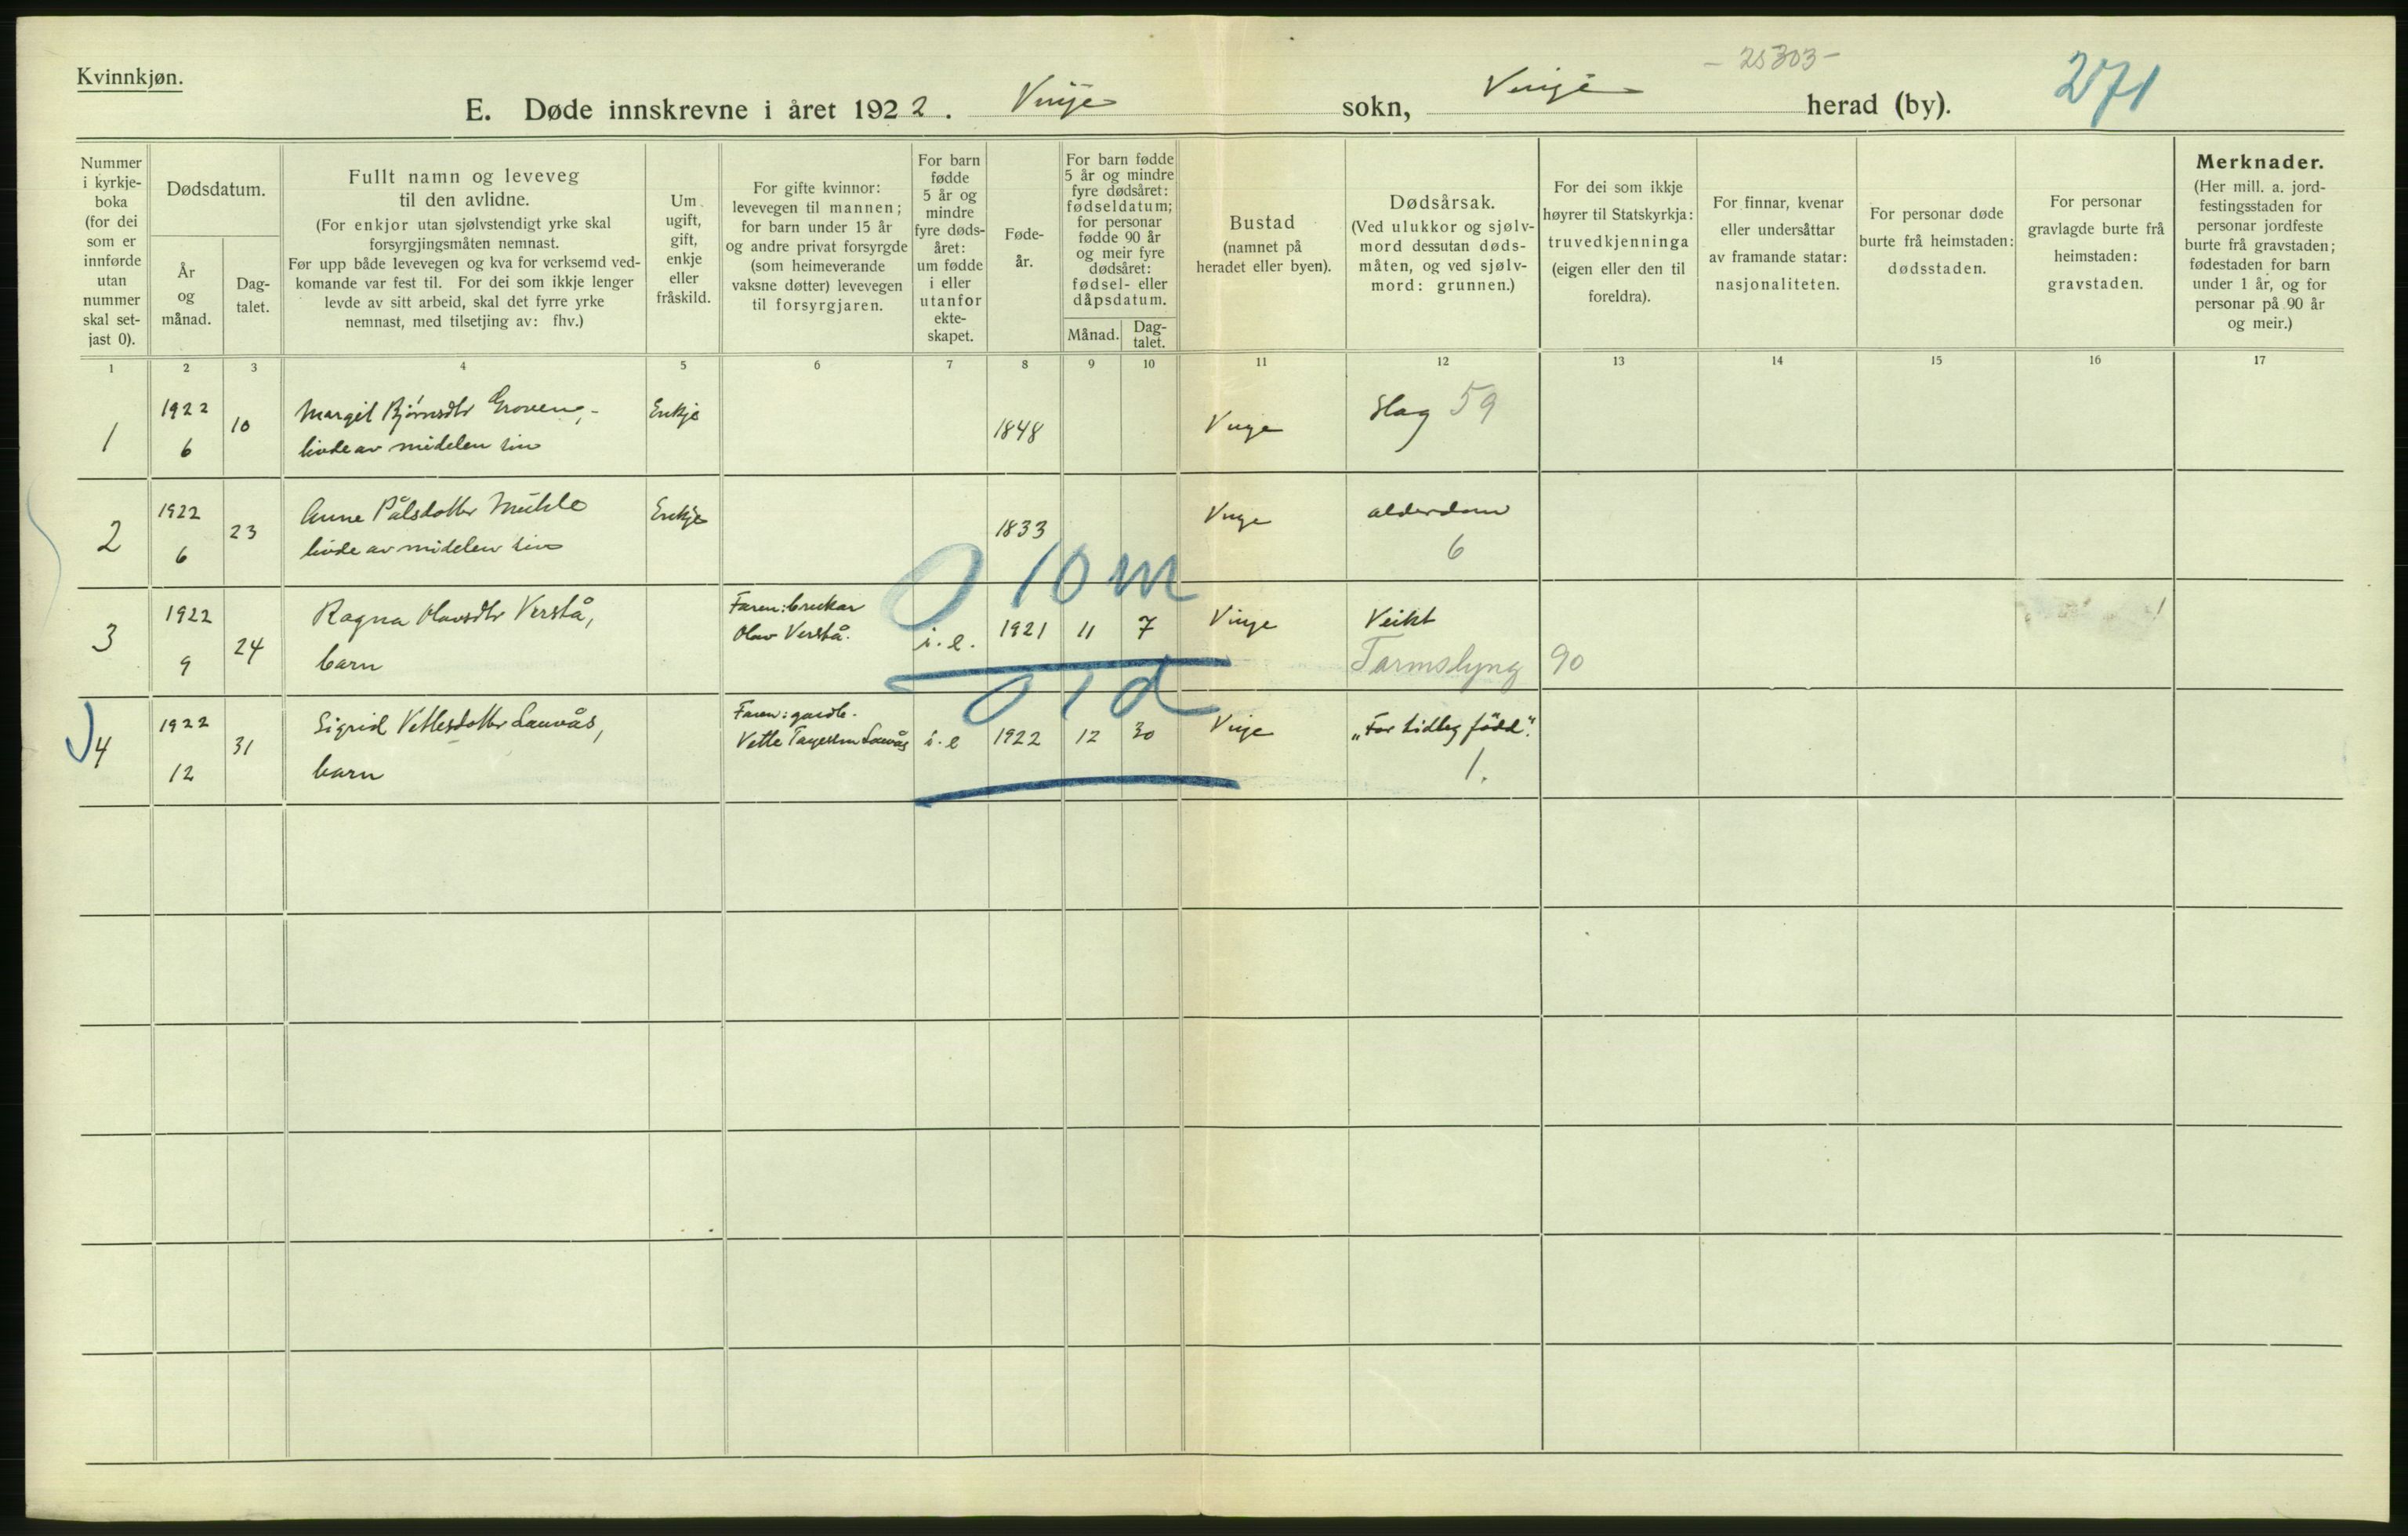 Kvinnkjøn.
- 25303 -
271
E. Døde innskrevne i året 1922. Vinje sokn, Vinje herad (by).
Nummer i kyrkje-boka (for dei som er innførde utan nummer skal set-jast 0).
Dødsdatum.
År og månad.
Dag-talet.
Fullt namn og leveveg til den avlidne.
(For enkjor utan sjølvstendigt yrke skal forsyrgjingsmåten nemnast.
Før upp både levevegen og kva for verksemd ved-komande var fest til. For dei som ikkje lenger levde av sitt arbeid, skal det fyrre yrke nemnast, med tilsetjing av: fhv.)
Um ugift, gift, enkje eller fråskild.
For gifte kvinnor: levevegen til mannen; for barn under 15 år og andre privat forsyrgde (som heimeverande vaksne døtter) levevegen til forsyrgjaren.
For barn fødde 5 år og mindre fyre døds-året: um fødde i eller utanfor ekte-skapet.
Føde-år.
For barn fødde 5 år og mindre fyre dødsåret: fødseldatum; for personar fødde 90 år og meir fyre dødsåret: fødsel- eller dåpsdatum.
Månad.
Dag-talet.
Bustad (namnet på heradet eller byen).
Dødsårsak.
(Ved ulukkor og sjølv-mord dessutan døds-måten, og ved sjølv-mord: grunnen.)
For dei som ikkje høyrer til Statskyrkja: truvedkjenninga (eigen eller den til foreldra).
For finnar, kvenar eller undersåttar av framande statar: nasjonaliteten.
For personar døde burte frå heimstaden: dødsstaden.
For personar gravlagde burte frå heimstaden: gravstaden.
Merknader.
(Her mill. a. jord-festingsstaden for personar jordfeste burte frå gravstaden; fødestaden for barn under 1 år, og for personar på 90 år og meir.)
1 2 3 4 5 6 7 8 9 10 11 12 13 14 15 16 17
1 1922 6 10 Margit Bjørnsdtr Groven, Enkje 1848 Vinje Slag 59
livde av midelen sin
2 1922 6 23 Anne Pålsdotter Enkje 1833 Vinje alderdom 6
livde av midelen sin
0 10 m
3 1922 9 24 Ragna Olavsdtr Verstå, Faren: brukar i. e. 1921 11 7 Vinje Veikt
barn Olav Verstå. Tarmslyng 90
0 1 d
4 1922 12 31 Sigrid Vetlesdotter Lauvås, Faren: gardb. i. e 1922 12 30 Vinje „For tidleg fødd".
barn Vetle Lauvås 1.